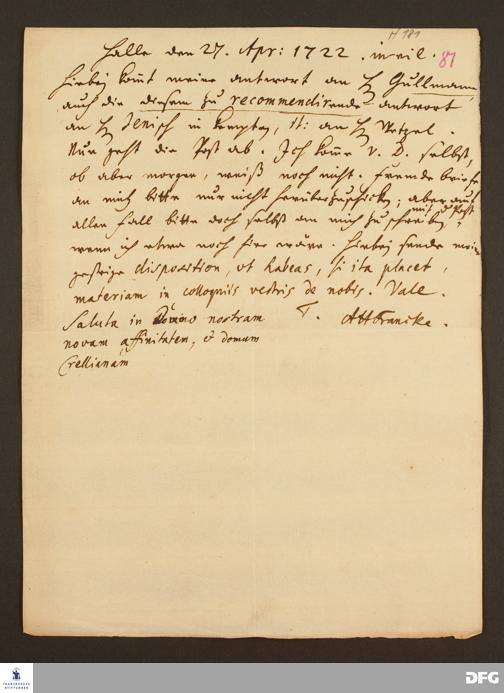 H 181
81
Halle den 27. Apr: 1722. in vil.
Hiebey komt meine antwort an H Gullmann,
auch die diesem zu recommendirende antwort
an H Jenisch in kempten, it: an H Wetzel.
Nun geht die Post ab. Ich komme v. D. selbst,
ob aber morgen, weiß noch nicht. fremde briefe
an mich bitte nur nicht herüberzuschicken; aber auf
allen fall bitte doch selbst an mich zu schreiben, mit d Post
wenn ich etwa noch hier wäre. Hiebey sende meine
gestrige disposition, ut habeas, si ita placet,
materiam in colloquiis vestris de nobis. Vale.
Saluta in Domino nostram T. AHFrancke.
novam affinitatem, & domum
Crellianam
FRANCKESCHE STIFTUNGEN
DFG